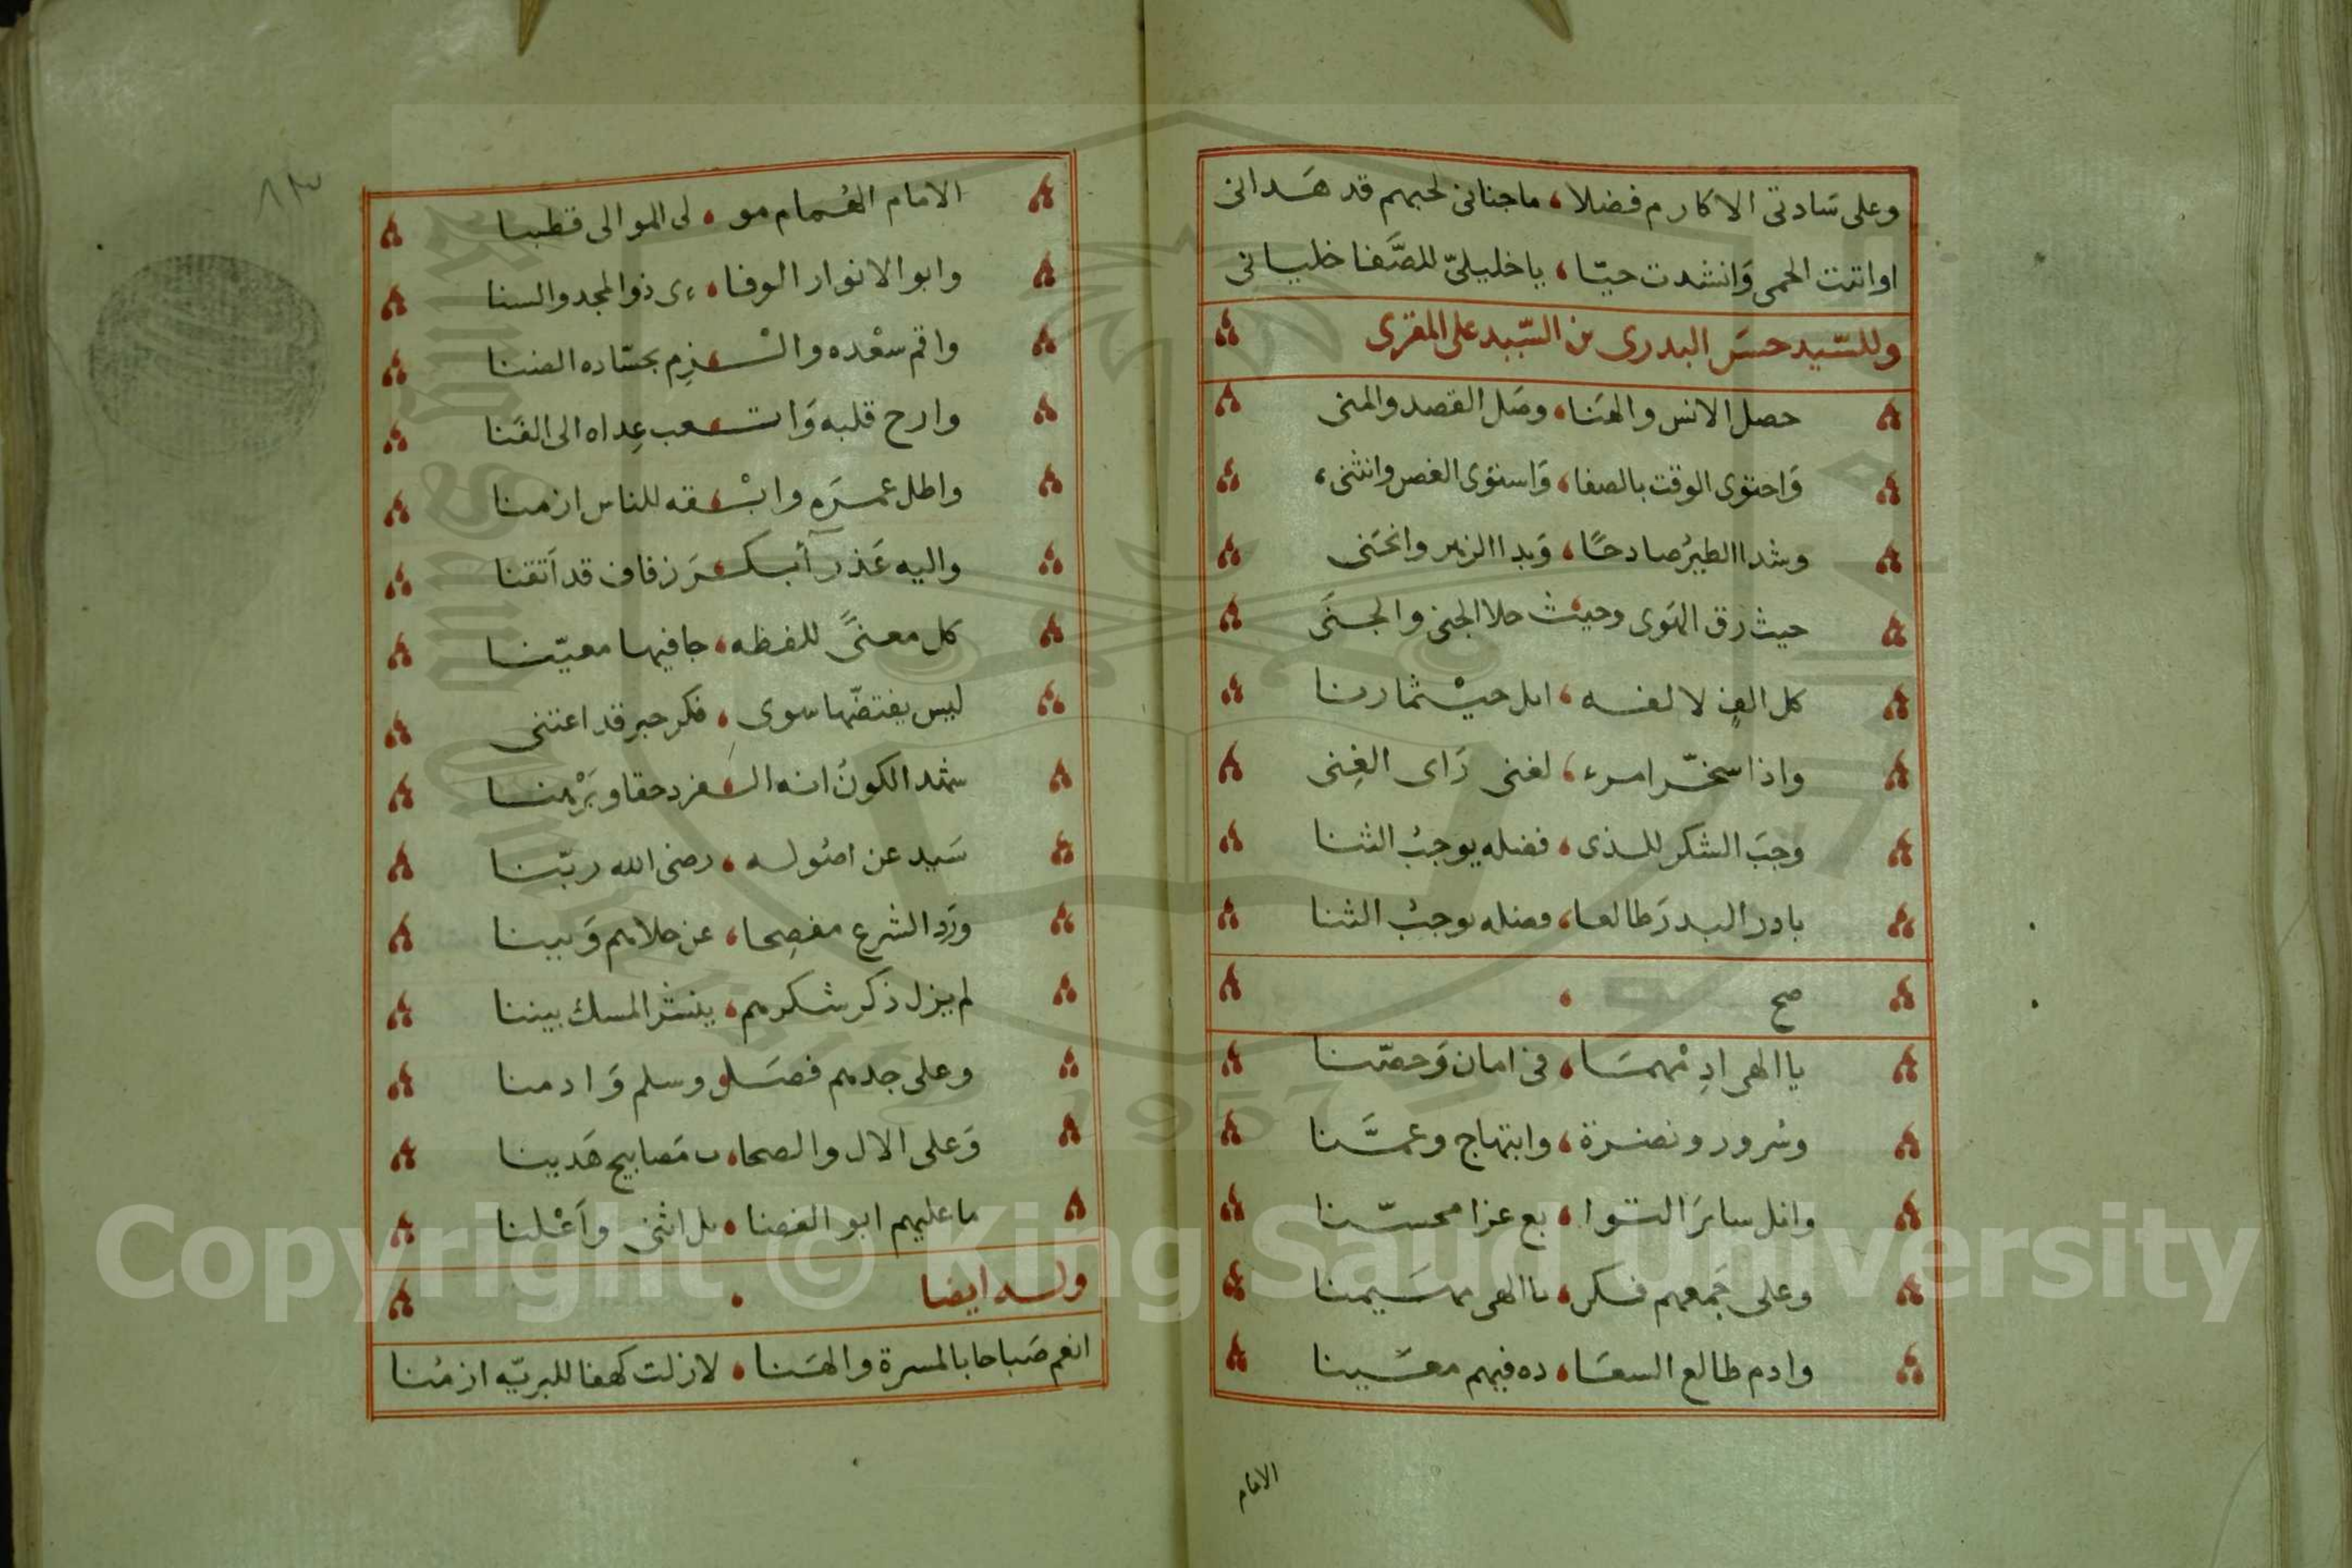 وعلى سَادتى الاكارم فضلا، ماجنانى لحبهم قد هَدانى
او اتت الحمى وَانشدت حيّا، ياخليلىّ للصَّفا خليانى
وللسّيد حسَن البدرى بن السّيد على المقرى
حصل الانس والهَنا، وصَل القصد والمنى
وَاحتوى الوقت بالصفا، وَاستوى الغصن وانثنى،
وشدا الطيرُ صادحًا، وَبدا الزهر وانحَنى
حيث رق الهَوى وحيث حلا الجنى والجَنَى
كل الفٍ لالفه، حيثما رنا
واذا سخّر امرء، لغنى رَاى الغِنى
وجبَ الشكر للذى، فضله يوجبُ الثنا
بادر البدرَ طالعا، فضله يوجبُ الثنا
صح
يا الهى ادِمْهمَا، فى امان وَحصّنا
وسُرور ونضرة، وابتهاج وعمَّنا
وانل سائرَ التوا، بع عزا محسّنا
وعلى جَمعهم فكن، يا الهى مهَيمنا
وادم طالع السعَا، ده فيهم معَينا
الامام
الامام الهُمام مو، لى الموالى قطبنا
وابو الانوار الوفا، ءى ذو المجد والسنا
واقم سعْده والْـ، ـزِم بحسّاده الضنا
وارح قلبه وَاتـ، ـعب عِداه الى الفَنا
واطل عمرَه وابْـ، ـقه للناس ازمنا
واليه عَذرآ أبكـ، ـرَ زفاف قد اَتقنا
كل معنىً للفظه، جا فيها معيّنا
ليس يفتضّها سوى، فكر حبر قد اعتنى
شهد الكونُ انه الـ، ـفرد حقا وبَرْهنا
سَيد عن اصُوله، رضى الله ربّنا
ورَد الشرع مفصِحا، عن حلاهم وَبينا
لم يزل ذكر شكرهم، ينشر المسك بيننا
وعلى جدهم فصَل، وسلم وَادمنا
وَعلى الال والصحا، ب مَصابيح هَدينا
ما عليهم ابو الفضنا، بل اثنى وَاَعْلنا
وله ايضا
انعم صَباحا بالمسرة والهَنا، لازلت كهفا للبريّه ازمُنا
٨٣
Copyright © King Saud University
1957